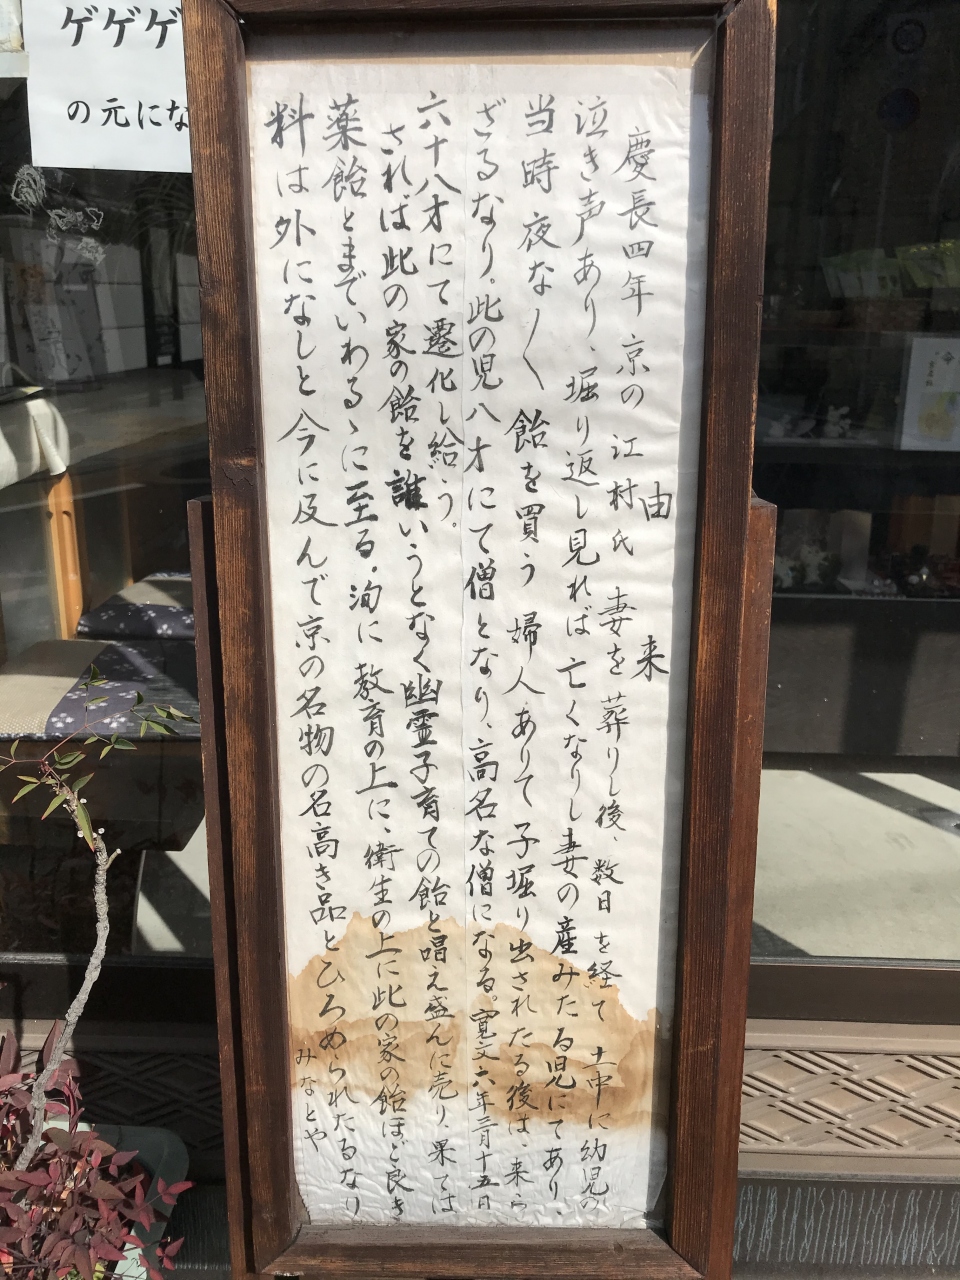 由来
慶長四年 京の 江村氏 妻を 葬りし後、数日を経て 土中に幼児の
泣き声あり、堀り返し見れば 亡くなりし妻の産みたる児にてあり、
当時 夜な〱 飴を買う 婦人ありて 子堀り出されたる後は、来ら
ざるなり。此の児八才にて僧となり、高名な僧になる。寛文六年三月十五日
六十八才にて 遷化し給う。
されば此の家の飴を誰いうとなく幽霊子育ての飴と唱え盛んに売り、果ては
薬飴とまでいわるゝに至る。洵に 教育の上に、衛生の上に此の家の飴ほど良き
料は外になしと 今に及んで京の名物の名高き品とひろめられたるなり
みなとや
ゲゲゲ
の元にな